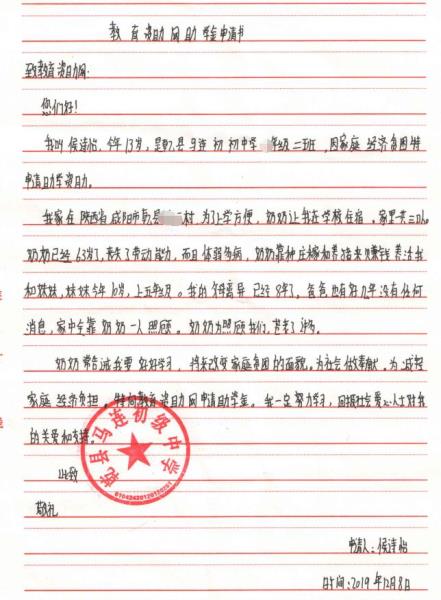 教育资助网助学金申请书
致教育资助网:
您们好!
我叫侯诗怡，今年13岁，是乾县马连初级中学 年级二班，因家庭经济贫困特
申请助学资助。
我家在陕西省咸阳市乾县 村，为了上学方便，奶奶让我在学校住宿。家里共三口人。
奶奶已经63岁了，丧失了劳动能力，而且体弱多病，奶奶靠种庄稼和养猪来贝赚钱养活我
和妹妹，妹妹今年10岁，上五年级。我的母离异已经8年了。爸爸也有好几年没有任何
消息，家中全靠奶奶一人照顾。奶奶为照顾我们，苦老了许多。
奶奶常告诫我要好好学习，将来改变家庭贫困的面貌。为社会做奉献。为减轻
家庭经济负担。特向教育资助网申请助学金。我一定努力学习，回报社会爱心人士对我
的关爱和支持。
此致
敬礼
乾县马连初级中学
申请人:侯诗怡
时间:2019年12月8日